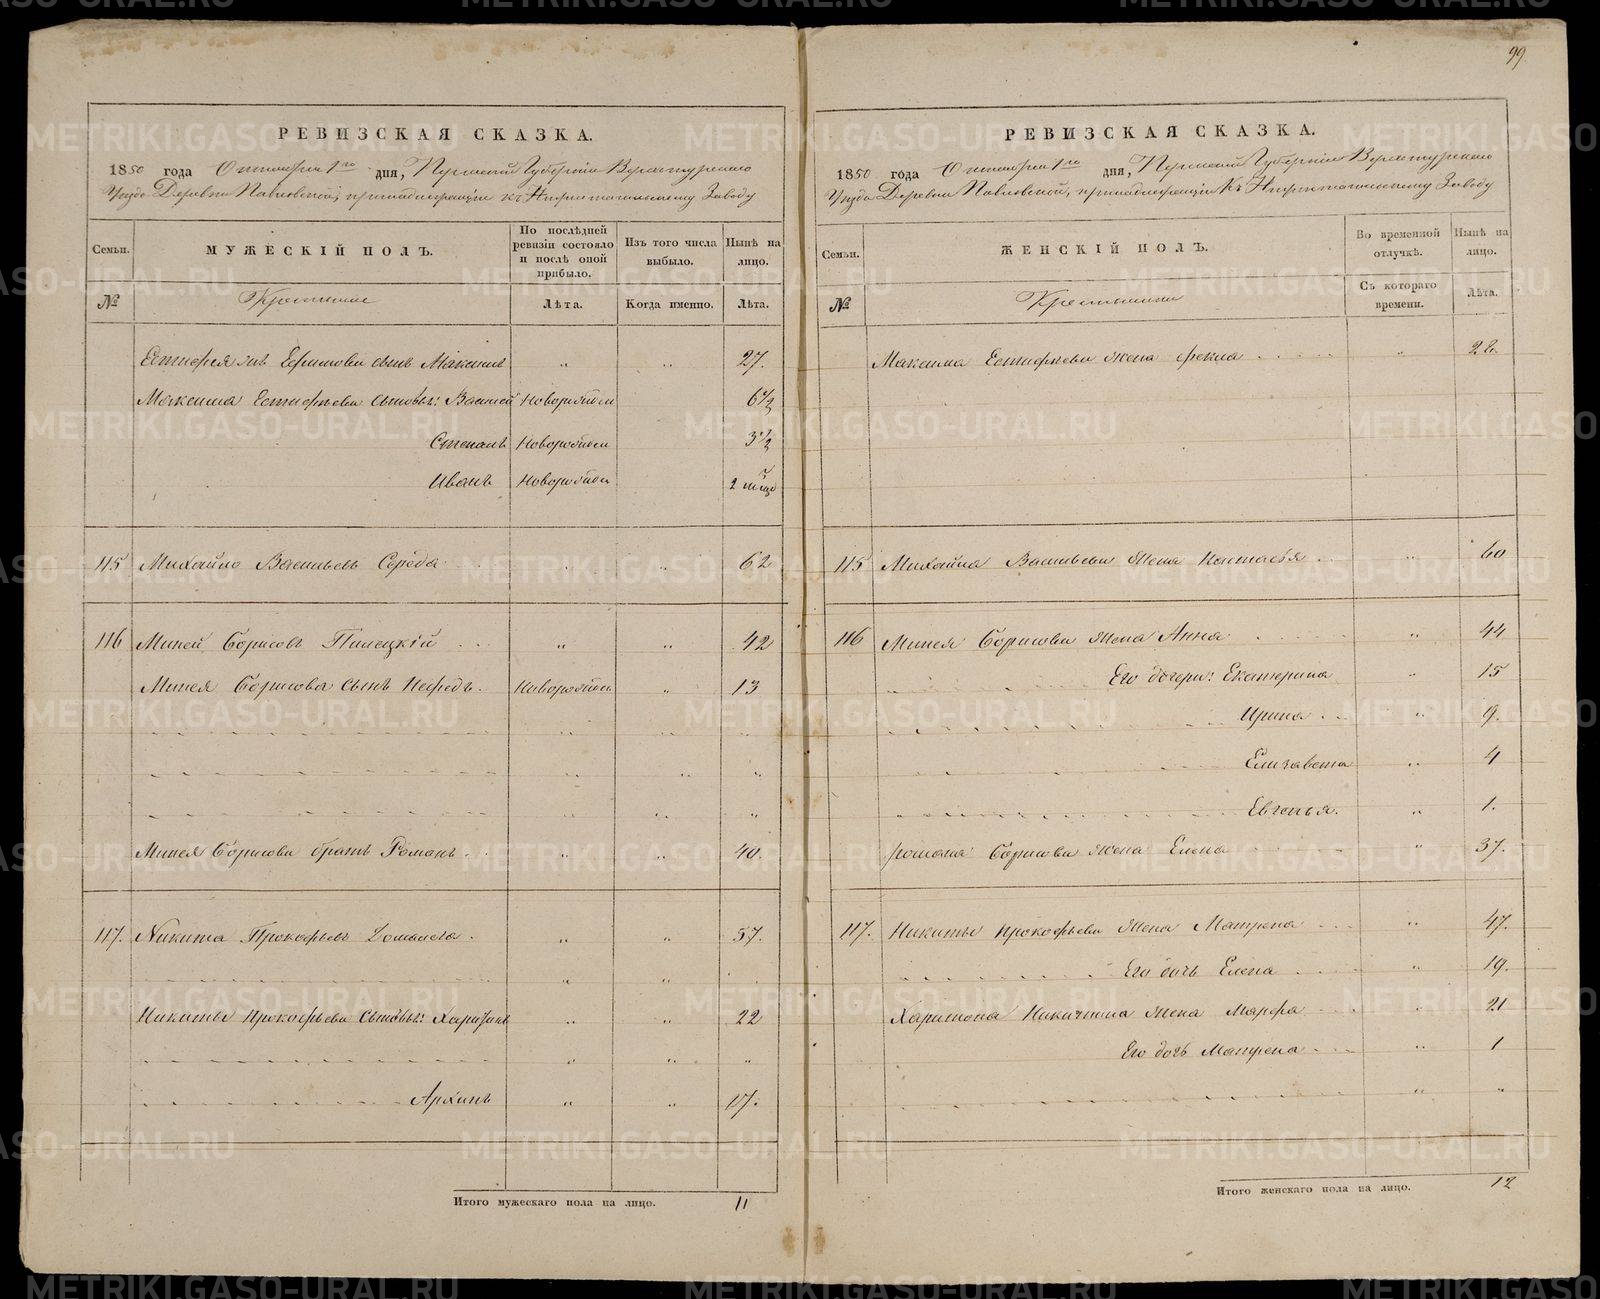 99
РЕВИЗСКАЯ СКАЗКА.
1850 года Октября 1го дня, Пермской Губернiи Верхотурскаго
Уезда Деревни Павловской, принадлежащей къ Нижнетагильскому Заводу
Семьи.
МУЖЕСКIЙ ПОЛЪ.
По послѣдней ревизiи состояло и послѣ оной прибыло.
Изъ того числа выбыло.
Нынѣ на лицо.
№
Крестьяне
Лѣта.
Когда именно.
Лѣта.
Естифея Ефимова сынъ Максимъ " " 27.
Максима Естифѣева сыновья: Василей Новорожден 6 1/2
Степанъ Новорожден 3 1/2
Иванъ Новорожден 2 мѣц
115 Михайло Васильевъ Середа " " 62
116 Миней Борисовъ Пилецкiй " " 42
Минея Борисова сынъ Нефедъ. Новорожден " 13
Минея Борисова братъ Романъ " " 40.
117. Никита Прокофьевъ " " 57.
Никиты Прокофьева сыновья: Харитонъ " " 22
Архипъ " " 17.
Итого мужескаго пола на лицо. 11
РЕВИЗСКАЯ СКАЗКА.
1850 года Октября 1го дня, Пермской Губернiи Верхотурскаго
Уезда Деревни Павловской, принадлежащей Къ Нижнетагильскому Заводу
Семьи.
ЖЕНСКIЙ ПОЛЪ.
Во временной отлучкѣ.
Нынѣ на лицо.
№
Крестьянки
Съ котораго времени.
Лѣта.
Максима Естифѣева жена Фекла " 22.
115 Михайла Васильева жена Настасья " 60
116 Минея Борисова жена Анна " 44
Его дочери: Екатерина " 15
Ирина " 9.
Елизавета " 4
Евгенья. " 1.
Романа Борисова жена Елена " 37.
117. Никиты Прокофьева жена Матрена " 47.
Его дочь Елена " 19.
Харитона Никитина жена Марфа " 21
Его дочь Матрена " 1
Итого женскаго пола на лицо. 12
METRIKI.GASO-URAL.RU